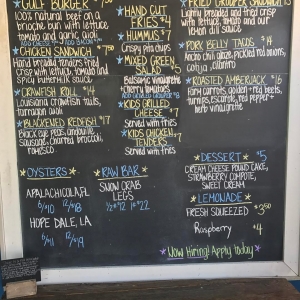 GULF BURGER
100% natural beef on a
brioche bun with lettuce
tomato and garlic aioli
CHICKEN SANDWICH
Hand breaded tenders fried
crisp with lettuce, tomato and
spicy buttermilk sauce
CRAWFISH ROLL $14
Louisiana crawfish tails,
tarragon aioli
BLACKENED REDFISH $17
Black eye peas, andouille
sausage, charred broccoli,
romesco
HAND CUT
FRIES $4
HUMMUS $7
Crispy pita chips
MIXED GREEN
SALAD $5
Balsamic vinaigrette
+ cherry tomatoes
KIDS GRILLED
CHEESE
Served with fries
KIDS CHICKEN
TENDERS
Served with fries
FRIED GROUPER SANDWICH
Lightly breaded and fried crisp
with lettuce, tomato and our
lemon dill sauce
PORK BELLY TACOS $14
Ancho chili glaze, pickled red onions,
cotija, cilantro
ROASTED AMBERJACK $16
Farm carrots, golden + red beets,
turnips, escarole, red pepper +
herb vinaigrette
OYSTERS
APALACHICOLA, FL
6/$10 12/$18
HOPE DALE, LA
6/$11 12/$19
RAW BAR
SNOW CRAB
LEGS
1/2# $12 1# $22
DESSERT $5
CREAM CHEESE POUND CAKE,
STRAWBERRY COMPOTE,
SWEET CREAM
LEMONADE
FRESH SQUEEZED $3.50
Raspberry $4
Now Hiring! Apply today